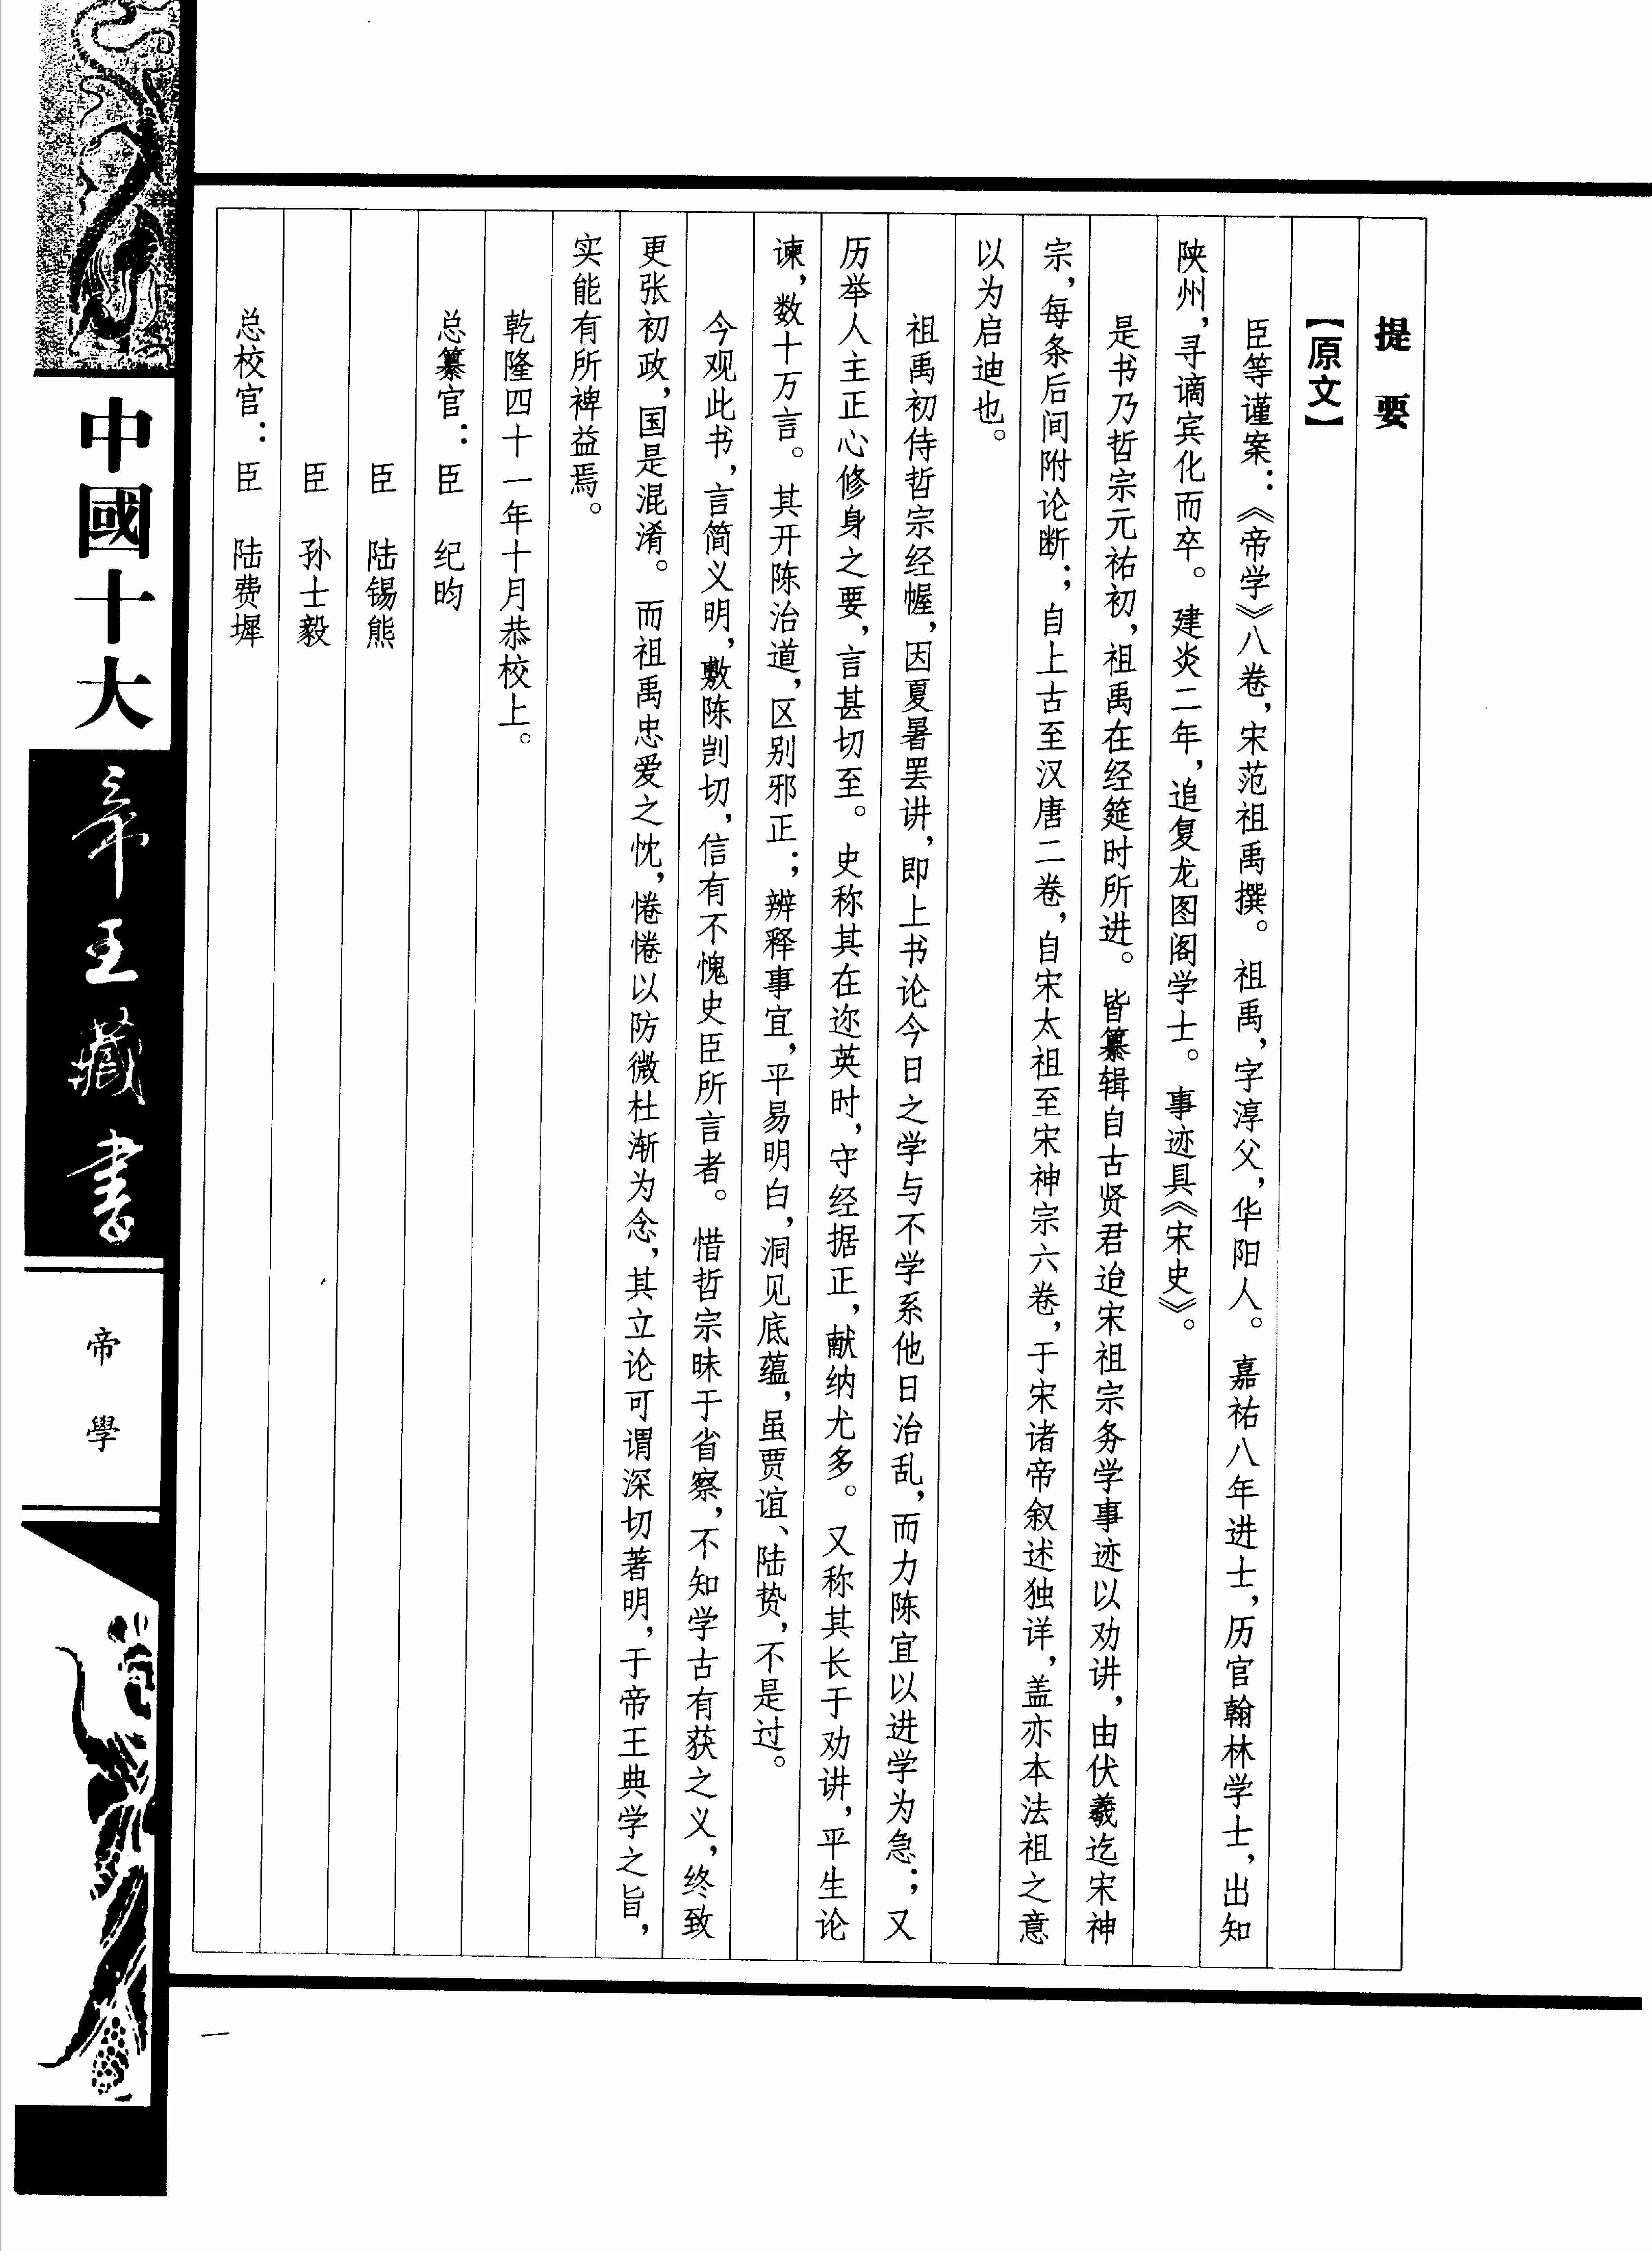 提　要
【原文】
臣等谨案：《帝学》八卷，宋范祖禹撰。祖禹，字淳父，华阳人。嘉祐八年进士，历官翰林学士，出知
陕州，寻谪宾化而卒。建炎二年，追复龙图阁学士。事迹具《宋史》。
是书乃哲宗元祐初，祖禹在经筵时所进。皆纂辑自古贤君迨宋祖宗务学事迹以劝讲，由伏羲迄宋神
宗，每条后间附论断；自上古至汉唐二卷，自宋太祖至宋神宗六卷，于宋诸帝叙述独详，盖亦本法祖之意
以为启迪也。
祖禹初侍哲宗经幄，因夏暑罢讲，即上书论今日之学与不学系他日治乱，而力陈宜以进学为急；又
历举人主正心修身之要，言甚切至。史称其在迩英时，守经据正，献纳尤多。又称其长于劝讲，平生论
谏，数十万言。其开陈治道，区别邪正；辨释事宜，平易明白，洞见底蕴，虽贾谊、陆贽，不是过。
今观此书，言简义明，敷陈剀切，信有不愧史臣所言者。惜哲宗昧于省察，不知学古有获之义，终致
更张初政，国是混淆。而祖禹忠爱之忱，惓惓以防微杜渐为念，其立论可谓深切著明，于帝王典学之旨，
实能有所裨益焉。
乾隆四十一年十月恭校上。
总纂官：臣　纪昀
臣　陆锡熊
臣　孙士毅
总校官：臣　陆费墀
中國十大
帝王藏書
帝學
一